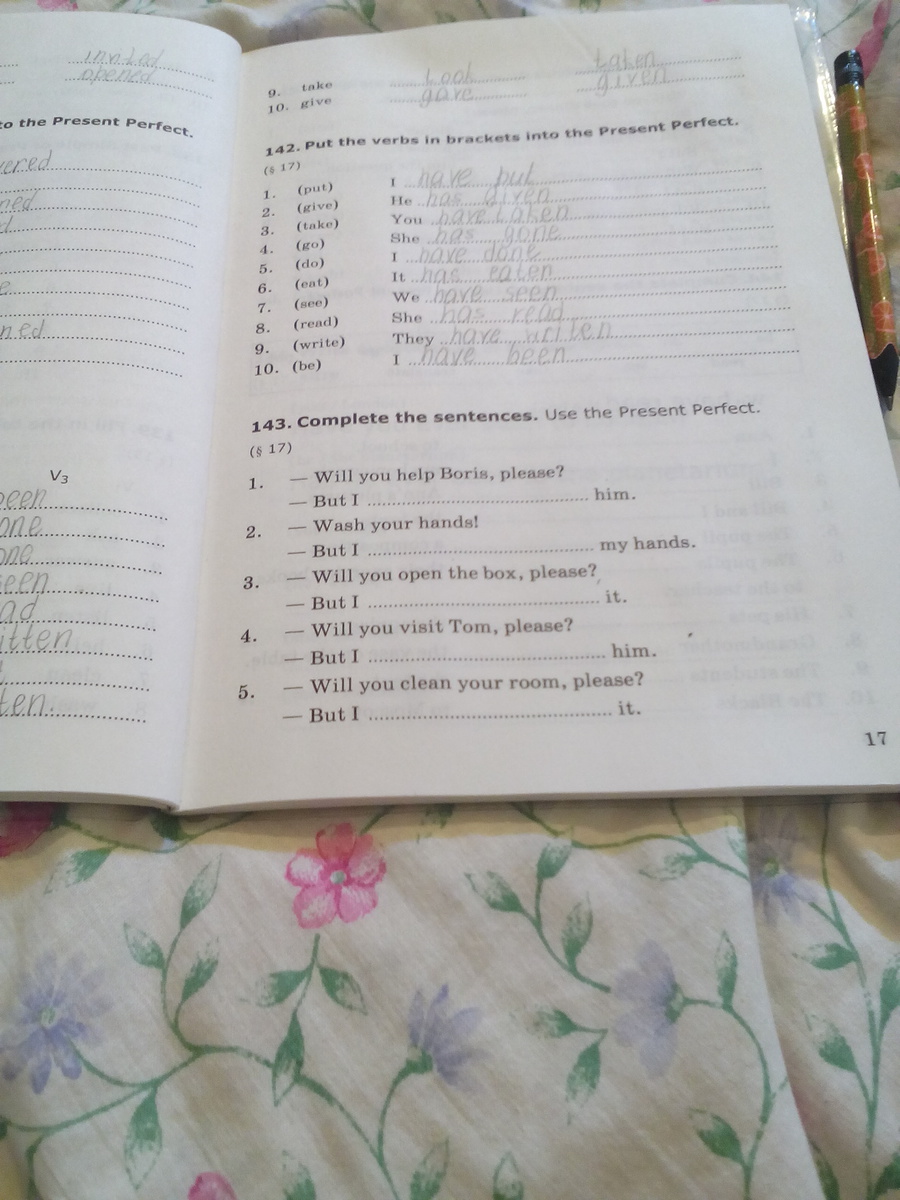 invited
opened
to the Present Perfect.
V₃
9. take took taken
10. give gave given
142. Put the verbs in brackets into the Present Perfect.
(§ 17)
1. (put) I have put
2. (give) He has given
3. (take) You have taken
4. (go) She has gone
5. (do) I have done
6. (eat) It has eaten
7. (see) We have seen
8. (read) She has read
9. (write) They have writen
10. (be) I have been
143. Complete the sentences. Use the Present Perfect.
(§ 17)
1. — Will you help Boris, please?
— But I .......... him.
2. — Wash your hands!
— But I .......... my hands.
3. — Will you open the box, please?
— But I .......... it.
4. — Will you visit Tom, please?
— But I .......... him.
5. — Will you clean your room, please?
— But I .......... it.
17